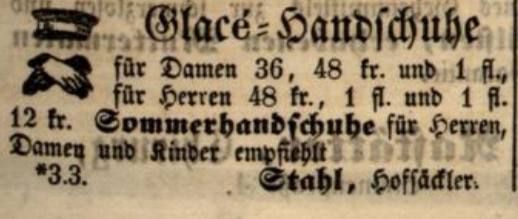 Glacé-Handschuhe
für Damen 36, 48 kr. und 1 fl.,
für Herren 48 kr., 1 fl. und 1 fl.
12 kr. Sommerhandschuhe für Herren,
Damen und Kinder empfiehlt
*3.3. Stahl, Hofsäckler.